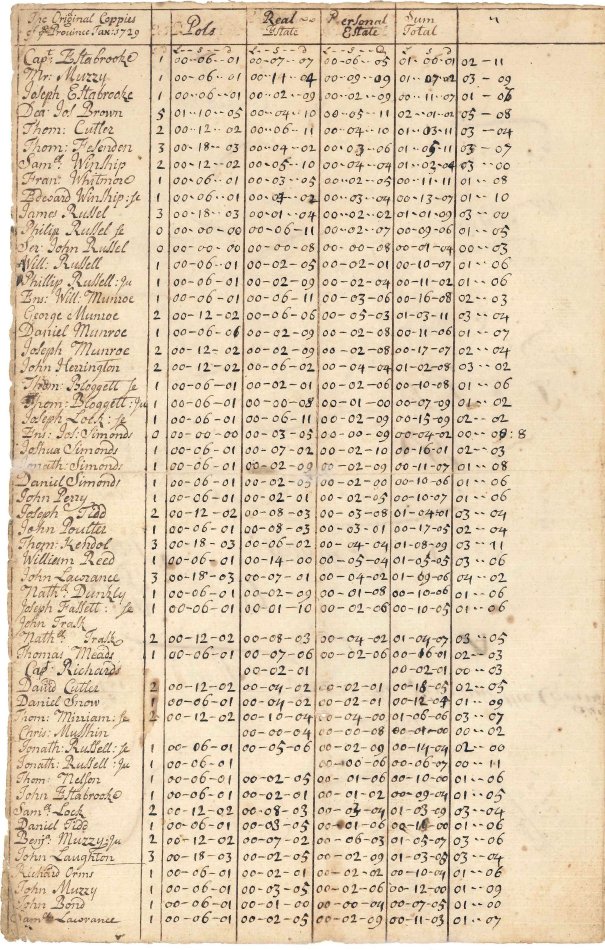 The Original Coppies of ye Province Tax: 1729 Pols Real Estate Personal Estate Sum Total
£--s--d £--s--d £--s--d £ s d
Capt: Estabrooke 1 00--06--01 00--07--07 00--06--05 01--00--01 02--11
Mr: Muzzy 1 00--06--01 00--11--04 00--09--09 01--07--02 03--09
Joseph Estabrooke 1 00--06--01 00--02--09 00--02--09 00--11--07 01--06
Dea: Jos: Brown 5 01--10--05 00--04--10 00--05--11 02--01--02 05--08
Thom: Cutler 2 00--12--02 00--06--11 00--04--10 01--03--11 03--04
Thom: Fesenden 3 00--18--03 00--04--02 00--03--06 01--05--11 03--07
Samll Winship 2 00--12--02 00--05--10 00--04--04 01--02--04 03--00
Fran: Whitmore 1 00--06--01 00--03--05 00--02--05 00--11--11 01--08
Edward Winship: se 1 00--06--01 00--4--02 00--03--04 00--13--07 01--10
James Russel 3 00--18--03 00--01--04 00--02--02 01--01--09 03--00
Philip Russel se 0 00--00--00 00--06--11 00--02--07 00--09--06 01--05
Ser: John Russel 0 00--00--00 00--00--08 00--00--08 00--01--04 00--03
Will: Russell 1 00--06--01 00--02--05 00--02--01 00--10--07 01--06
Phillep Russell: Ju 1 00-06-01 00-02-08 00-02-04 00-11-02 01--06
Ens: Will: Munroe 1 00-06-01 00-06-11 00-03-06 00-16-08 02--03
George Munroe 2 00-12-02 00-06-06 00-05-03 01-03-11 03--04
Daniel Munroe 1 00-06-06 00-02-09 00-02-08 00-11-06 01--07
Joseph Munroe 2 00-12-02 00-02-09 00-02-08 00-17-07 02--04
John Herrington 2 00-12-02 00-06-02 00-04-04 01-02-08 03--02
Thom: Bloggett se 1 00-06-01 00-02-01 00-02-06 00-10-08 01--06
Thom: Bloggett: Ju 1 00-06-01 00-00-08 00-01-00 00-07-09 01--02
Joseph Lock: se 1 00-06-01 00-06-11 00-02-09 00-15-09 02--02
Ens: Jos: Simonds 0 00-00-00 00-03-05 00-00-09 00-04-02 00--08:8
Joshua Simonds 1 00-06-01 00-07-02 00-02-10 00-16-01 02--03
Jonath: Simonds 1 00-06-01 00-02-09 00-02-09 00-11-07 01--08
Daniel Simonds 1 00-06-01 00-02-05 00-02-00 00-10-06 01--06
John Perry 1 00-06-01 00-02-01 00-02-05 00-10-07 01--06
Joseph Tidd 2 00-12-02 00-08-03 00-03-08 01-04-01 03--04
John Poulter 1 00-06-01 00-08-03 00-03-01 00-17-05 02--04
Thom: Kendol 3 00-18-03 00-06-02 00-04-04 01-08-09 03--11
William Reed 1 00-06-01 00-14-00 00-05-04 01-05-05 03--06
John Lawrance 3 00-18-03 00-07-01 00-04-02 01-09-06 04--02
Nathll Dunkly 1 00-06-01 00-02-09 00-01-08 00-10-06 01--06
Joseph Fassett: se 1 00-06-01 00-01-10 00-02-06 00-10-05 01--06
John Trask
Nathll Trask 2 00-12-02 00-08-03 00-04-02 01-04-07 03--05
Thomas Meads 1 00-06-01 00-07-06 00-02-06 00-16-01 02--02
Capt: Richards 00-02-01 00-02-01 00--03
David Cutler 2 00-12-02 00-04-02 00-02-01 00-18-05 02--05
Daniel Snow 1 00-06-01 00-04-02 00-02-01 00-12-04 01--09
Thom: Miriam: se 2 00-12-02 00-10-04 00-04-00 01-06-06 03--07
Chris: Musshin 00-00-04 00-00-08 00-01-00 00--02
Jonath: Russell: se 1 00-06-01 00-05-06 00-02-09 00-14-04 02--00
Jonath: Russell: Ju 1 00-06-01 00-00-06 00-06-07 00--11
Thom: Nelson 1 00-06-01 00-02-05 00-01-06 00-10-00 01--06
John Estabrooke 1 00-06-01 00-02-01 00-01-02 00-09-04 01--05
Samll Lock 2 00-12-02 00-08-03 00-03-04 01-03-09 03--04
Daniel Tidd 1 00-06-01 00-03-05 00-01-06 00-11-00 01--06
Benj: Muzzy: Ju 2 00-12-02 00-07-02 00-06-03 01-05-07 03--06
John Laughton 3 00-18-03 00-02-05 00-02-09 01-03-05 03--04
Richard Orms 1 00-06-01 00-02-01 00-02-02 00-10-04 01--06
John Muzzy 1 00-06-01 00-03-05 00-02-06 00-12-00 01--09
John Bond 1 00-06-01 00-01-00 00-00-04 00-07-05 01--00
Samll Lawrance 1 00-06-01 00-02-05 00-02-09 00-11-03 01--07